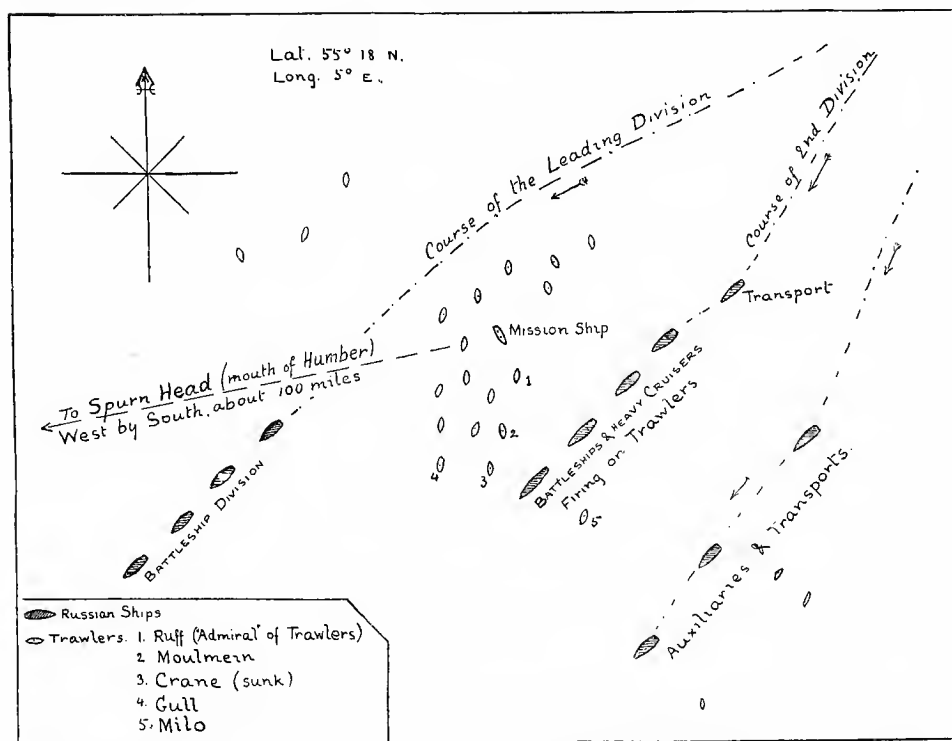 Lat. 55° 18 N.
Long. 5° E.
Course of the Leading Division
Course of 2nd Division
Transport
Mission Ship
To Spurn Head (mouth of Humber)
West by South, about 100 miles
1
2
3
4
5
BATTLESHIPS & HEAVY CRUISERS
Firing on Trawlers
BATTLESHIP DIVISION
Auxiliaries & Transports.
Russian Ships
Trawlers. 1. Ruff ("Admiral" of Trawlers)
2 Moulmern
3. Crane (sunk)
4. Gull
5. Milo